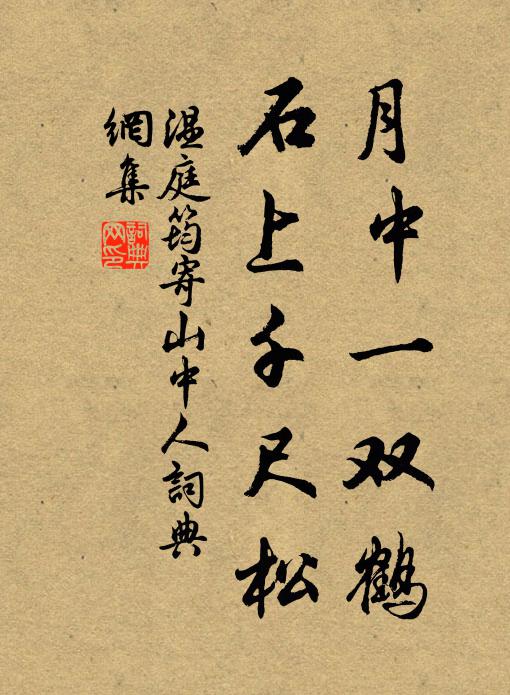 月中一双鹤
石上千尺松
温庭筠寄山中人词典
網集
詞典
网印